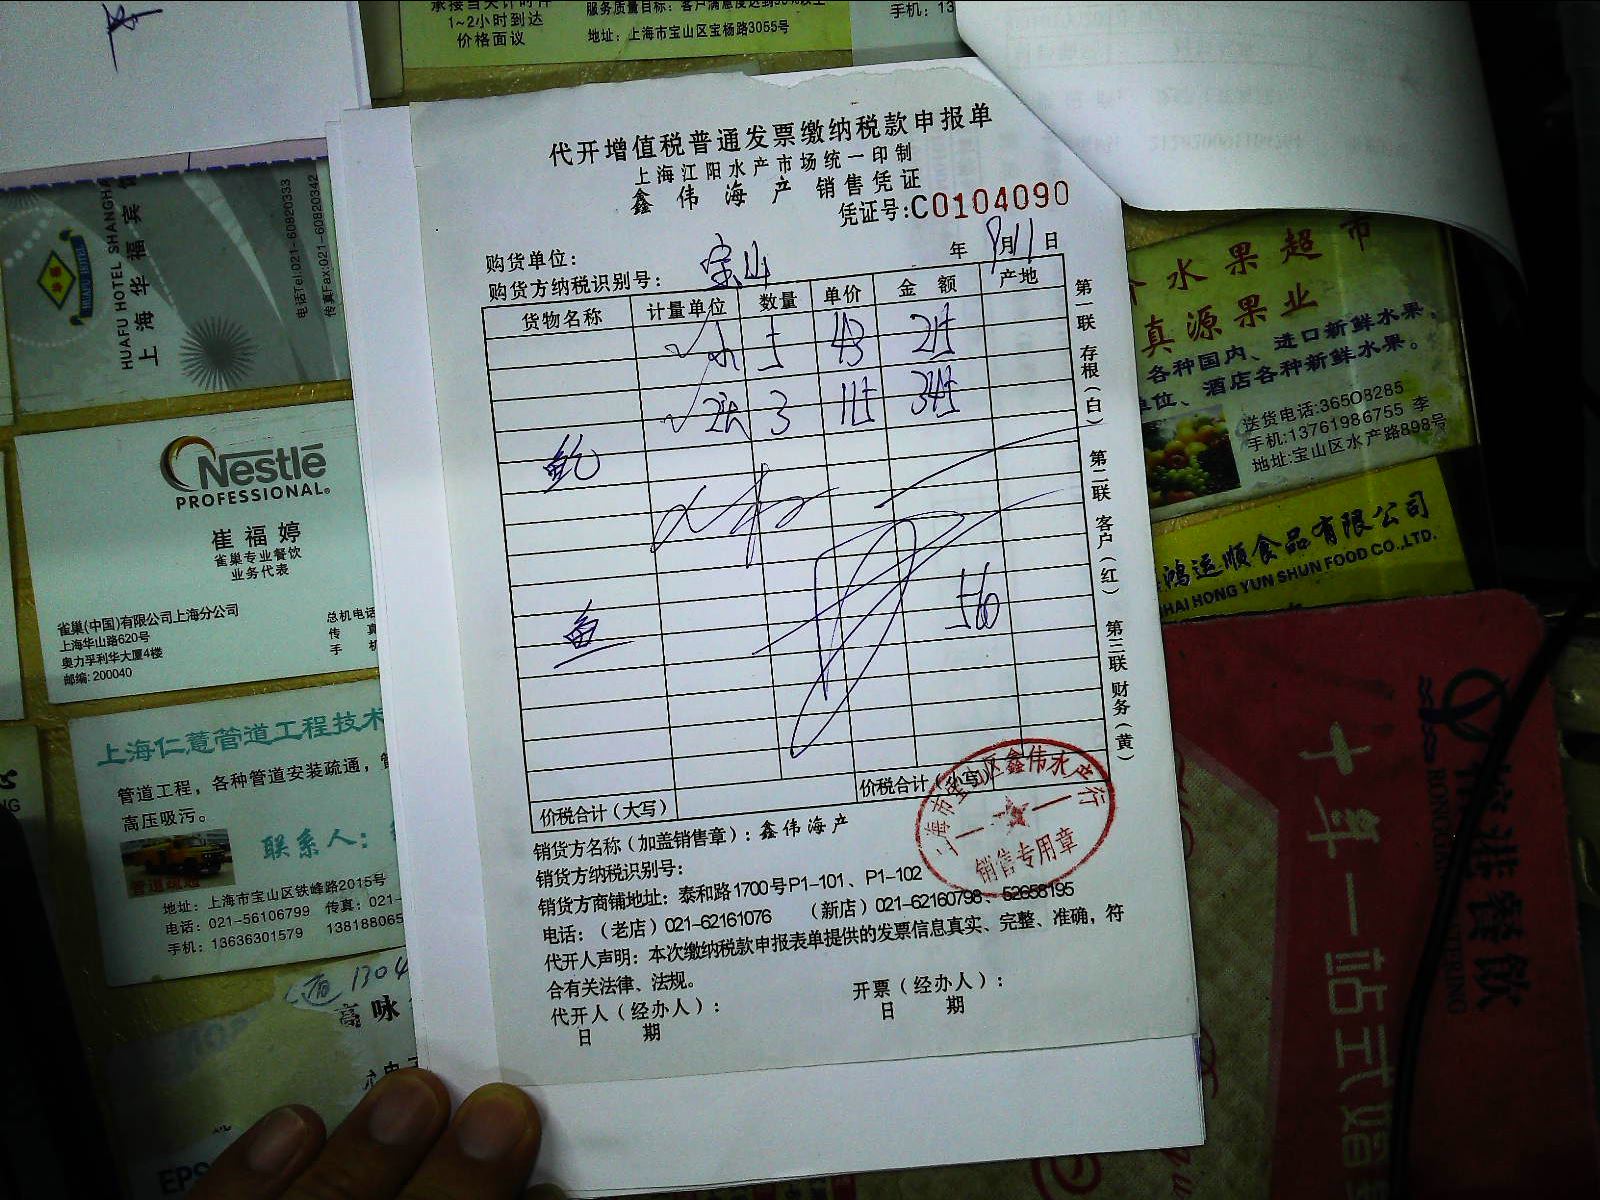 1~2小时到达
价格面议
地址：上海市宝山区宝杨路3055号
手机：13
代开增值税普通发票缴纳税款申报单
上海江阳水产市场统一印制
鑫伟海产 销售凭证
凭证号:C0104090
购货单位：
宝山
年 9月11日
购货方纳税识别号：
货物名称 计量单位 数量 单价 金额 产地
5 43 215
3 115 345
鱼
560
价税合计（大写） 价税合计（小写）
第一联 存根（白） 第二联 客户（红） 第三联 财务（黄）
销货方名称（加盖销售章）：鑫伟海产
销货方纳税识别号：
销货方商铺地址：泰和路1700号P1-101、P1-102
电话：（老店）021-62161076 （新店）021-62160798、52658195
代开人声明：本次缴纳税款申报表单提供的发票信息真实、完整、准确，符
合有关法律、法规。
代开人（经办人）： 开票（经办人）：
日 期 日 期
上海市宝山区鑫伟水产行
销售专用章
HUAFU HOTEL SHANGHA
上海华福宾
电话Tel:021-60820333
传真Fax:021-60820342
HUAFU HOTEL
Nestlé
PROFESSIONAL.
崔福婷
雀巢专业餐饮
业务代表
雀巢(中国)有限公司上海分公司
上海华山路620号
奥力孚利华大厦4楼
邮编: 200040
总机电话
传 真
手 机
管道工程，各种管道安装疏通，
高压吸污。
联系人：
管道疏通
地址：上海市宝山区铁峰路2015号
电话：021-56106799 传真：021-
手机：13636301579 138188065
1304
高咏
EPS
水果超市
真源果业
各种国内、进口新鲜水果。
单位、酒店各种新鲜水果。
送货电话:36508285
手机:13761986755 李
地址:宝山区水产路898号
鸿运顺食品有限公司
HAI HONG YUN SHUN FOOD CO.,LTD.
荣港餐饮
RONGGANG CATERING
十年一站式